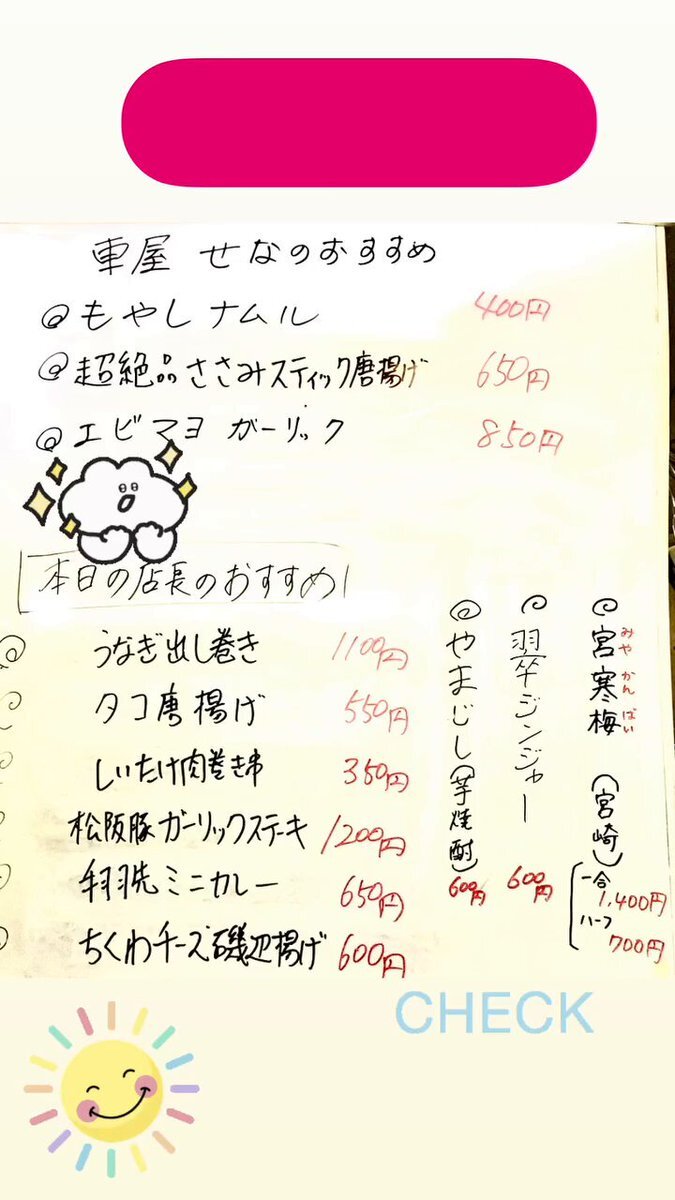 車屋 せなのおすすめ
もやしナムル 400円
超絶品ささみスティック唐揚げ 650円
エビマヨガーリック 850円
本日の店長のおすすめ
うなぎ出し巻き 1100円
タコ唐揚げ 550円
しいたけ肉巻き串 350円
松阪豚ガーリックステーキ 1200円
手羽先ミニカレー 650円
ちくわチーズ磯辺揚げ 600円
宮寒梅 (宮崎)
みや かん ばい
一合 1,400円
ハーフ 700円
翠ジンジャー 600円
やまじし(芋焼酎) 600円
CHECK